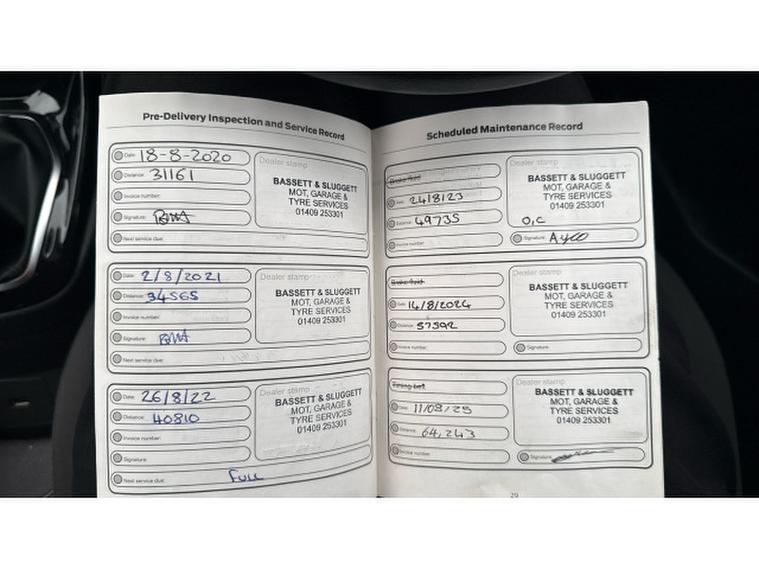 Pre-Delivery Inspection and Service Record
Date: 18-8-2020
Distance: 31161
Invoice number:
Signature:
Next service due:
Dealer stamp
BASSETT & SLUGGETT
MOT, GARAGE &
TYRE SERVICES
01409 253301
Date: 2/8/2021
Distance: 34565
Invoice number:
Signature:
Next service due:
Dealer stamp
BASSETT & SLUGGETT
MOT, GARAGE &
TYRE SERVICES
01409 253301
Date: 26/8/22
Distance: 40810
Invoice number:
Signature:
Next service due: FULL
Dealer stamp
BASSETT & SLUGGETT
MOT, GARAGE &
TYRE SERVICES
01409 253301
Scheduled Maintenance Record
Brake fluid
Date: 24/8/23
Distance: 49735
Invoice number:
Dealer stamp
BASSETT & SLUGGETT
MOT, GARAGE &
TYRE SERVICES
01409 253301
Signature:
Brake fluid
Date: 14/8/2024
Distance: 57592
Invoice number:
Dealer stamp
BASSETT & SLUGGETT
MOT, GARAGE &
TYRE SERVICES
01409 253301
Signature:
Timing belt
Date: 11/08/25
Distance: 64,243
Invoice number:
Dealer stamp
BASSETT & SLUGGETT
MOT, GARAGE &
TYRE SERVICES
01409 253301
Signature:
29